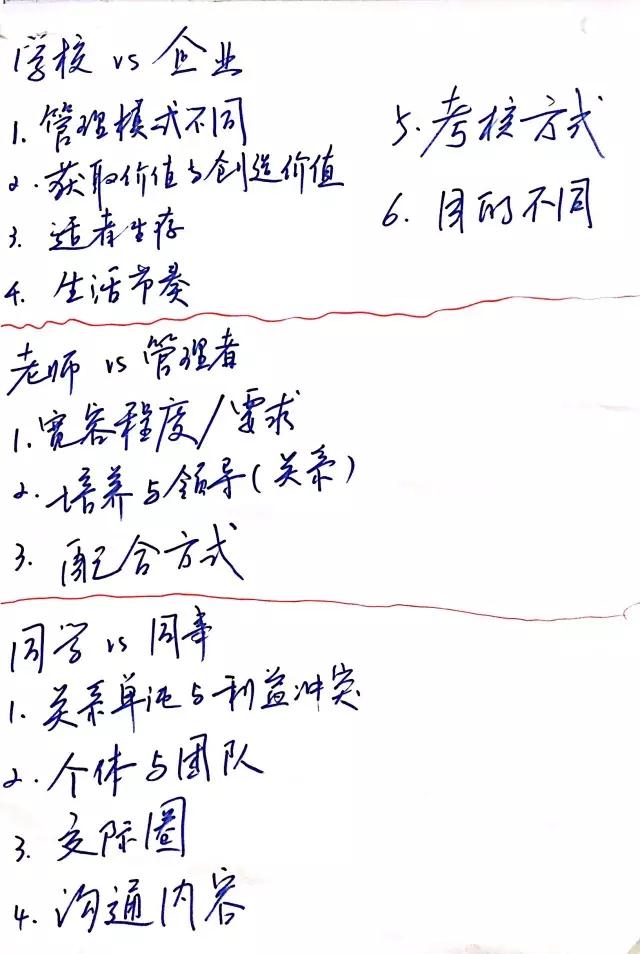 学校 vs 企业
1. 管理模式不同
2. 获取价值与创造价值
3. 适者生存
4. 生活节奏
5. 考核方式
6. 目的不同
老师 vs 管理者
1. 宽容程度/要求
2. 培养与领导(关系)
3. 配合方式
同学 vs 同事
1. 关系单纯与利益冲突
2. 个体与团队
3. 交际圈
4. 沟通内容